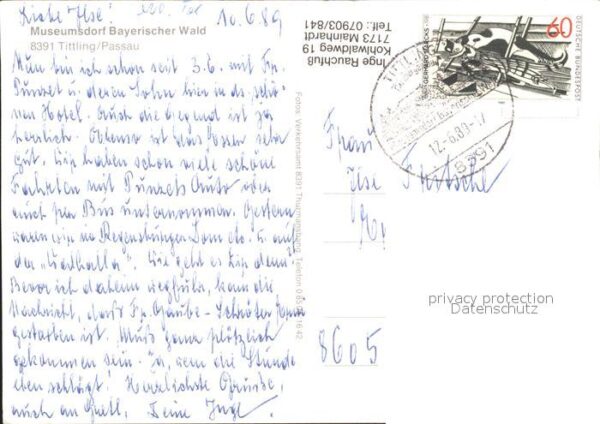 Liebe Ilse! 10.6.89
Museumsdorf Bayerischer Wald
8391 Tittling/Passau
Nun bin ich schon seit 3.6. mit Fr.
Punzet u. deren Sohn hier in ds. schö-
nen Hotel. Auch die Gegend ist ja
herrlich. Ebenso ist das Essen sehr
gut. Wir haben schon viele schöne
Fahrten mit Punzets Auto oder
auch per Bus unternommen. Gestern
waren wir in Regensburger Dom etc. u. auf
der "Walhalla". Wie geht es Dir denn?
Bevor ich daheim wegfuhr, kam die
Nachricht, daß Fr. Gaube-Schröter
gestorben ist. Muß ganz plötzlich
gekommen sein. Ja, wem die Stunde
eben schlägt! Herzlichste Grüße,
auch an Gretl, Deine Inge.
Fotos: Verkehrsamt 8391 Thurmansbang, Telefon 0 85 16 42
Inge Rauchfuß
Kohlwaldweg 19
7173 Mainhardt
Telf.: 07903/841
60
DEUTSCHE BUNDESPOST
12.-6.89-17
8391
Frau
Ilse Fritsche
8605
privacy protection
Datenschutz